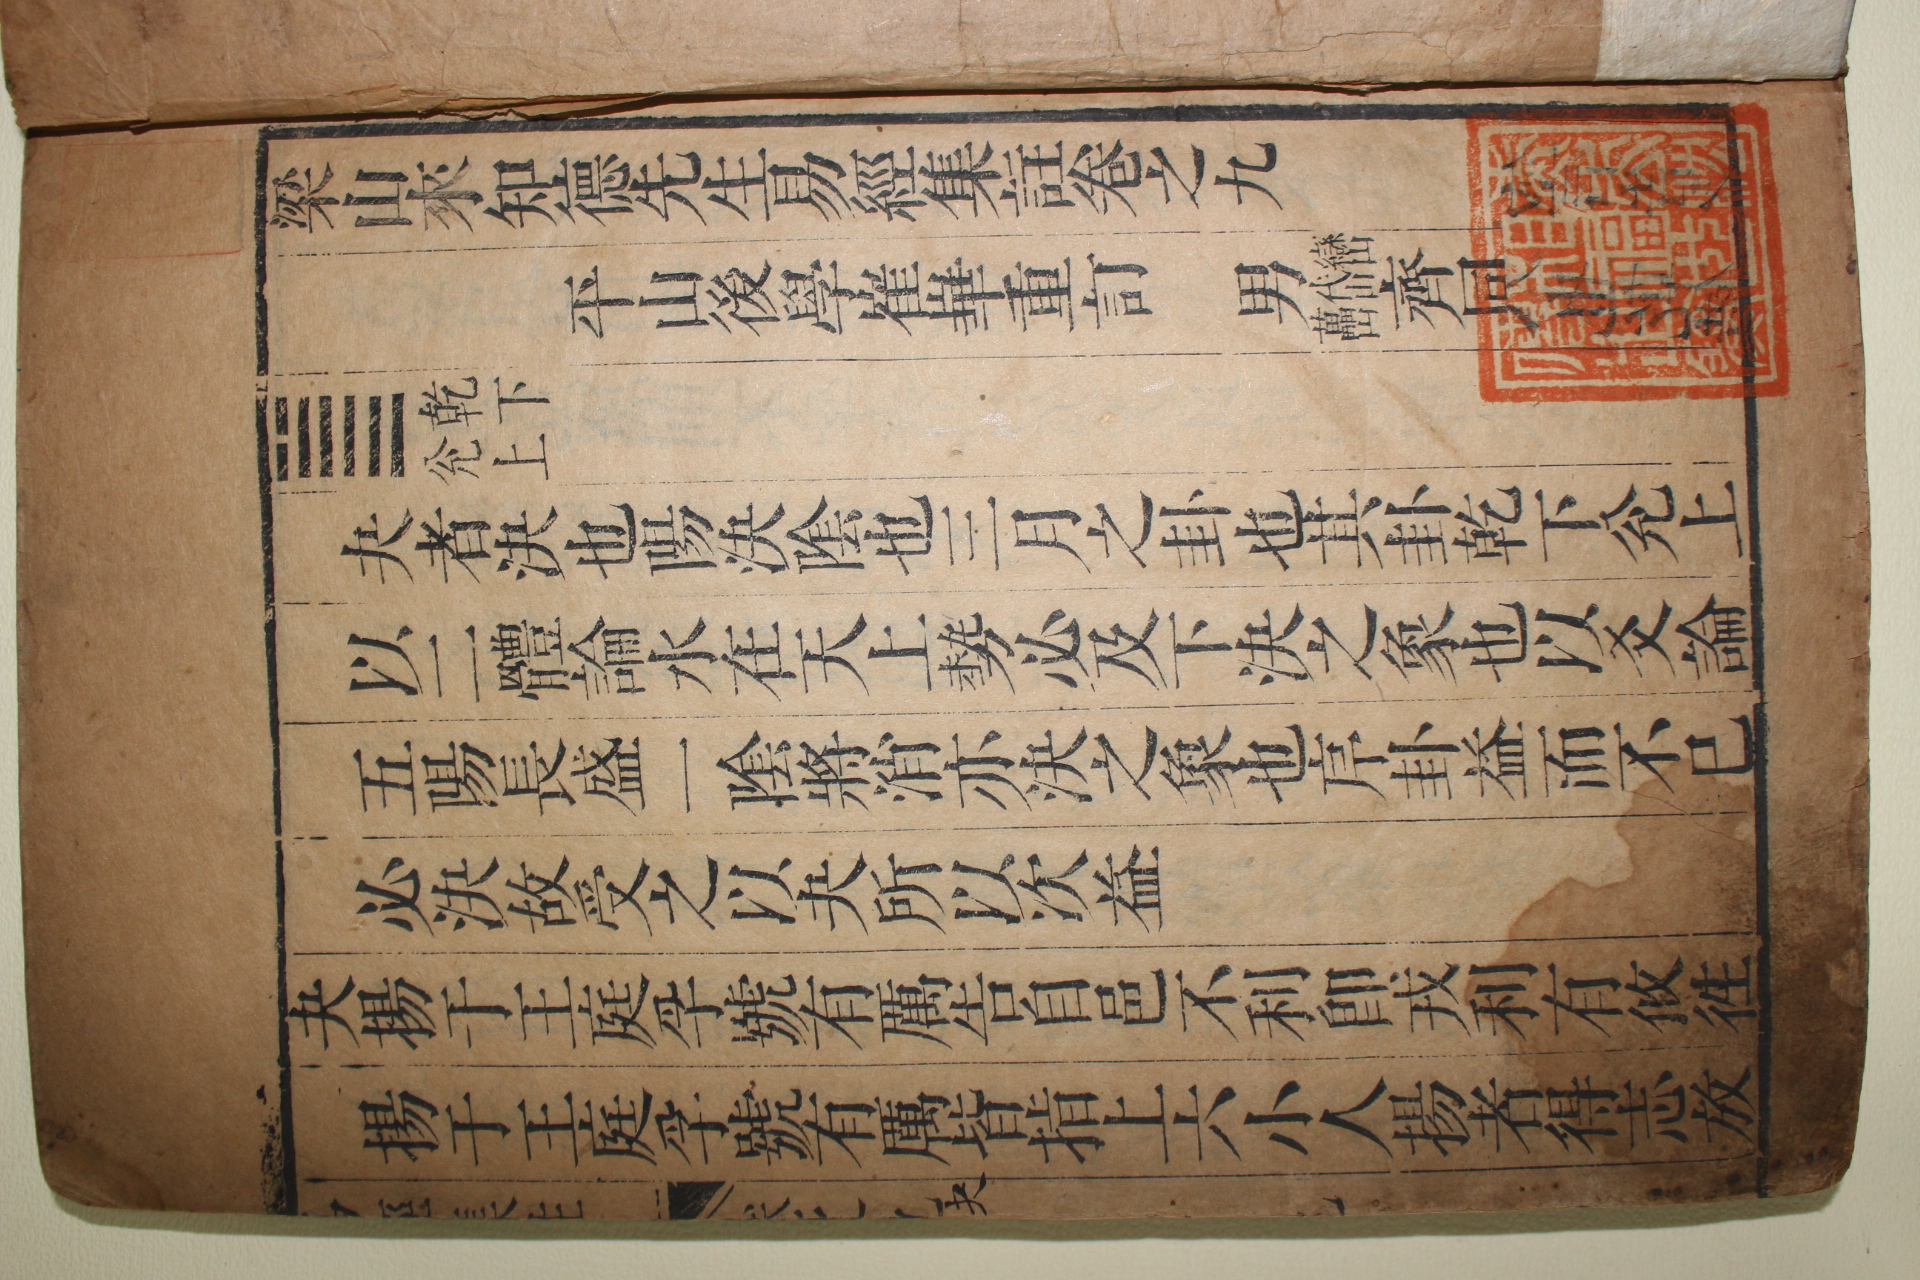 梁山來知德先生易經集註卷之九
平山後學崔華重訂 男 齊同
乾下
兌上
夬者決也陽決陰也三月之卦也其卦乾下兌上
以二體論水在天上勢必及下決之象也以爻論
五陽長盛一陰將消亦決之象也序卦益而不已
必決故受之以夬所以次益
夬揚于王庭孚號有厲告自邑不利卽戎利有攸往
揚于王庭孚號有厲皆指上六小人揚者得志放
夬